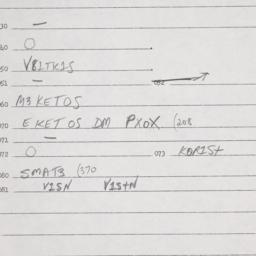 30 —
40 O
50 V81TK1S
51 — 052
060 M3 KETOS
070 EKETOS DM PXOX (208
071 —
072 O 073 KORISt
080 SMAT3 (370
081 V1SN V1StN